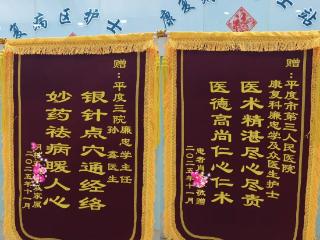 康复病区护士
赠：平度市第三人民医院
康复科廉忠学及众医生护士
医术精湛尽心尽责
医德高尚仁心仁术
二〇二五年十一月
赠：平度三院
廉忠学主任
孙鑫医生
银针点穴通经络
妙药祛病暖人心
二〇二五年十一月